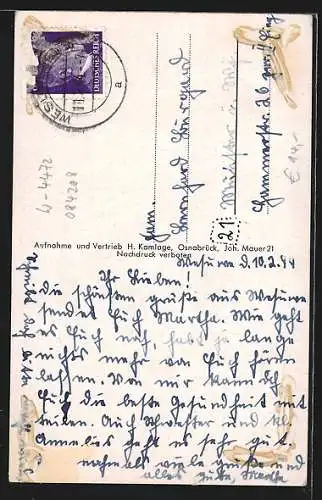 DEUTSCHES REICH
WES
a
W-4472
084208
Fam.
Bernhard
Münster i. W.
Hammerstr. 26
21
€ 14,-
Aufnahme und Vertrieb H. Kamlage, Osnabrück, Joh. Mauer 21
Nachdruck verboten
Wesuwe d. 10.2.44
Ihr Lieben!
die schönsten Grüße aus Wesuwe
sendet Euch Martha. Wie geht
es Euch noch, habt ja lange
nichts mehr von Euch hören
lassen. Von mir kann ich
Euch die beste Gesundheit mit
teilen. Auch Schwester und kl.
Annelies geht es sehr gut.
nochmals viele Grüße und
alles Gute, Martha